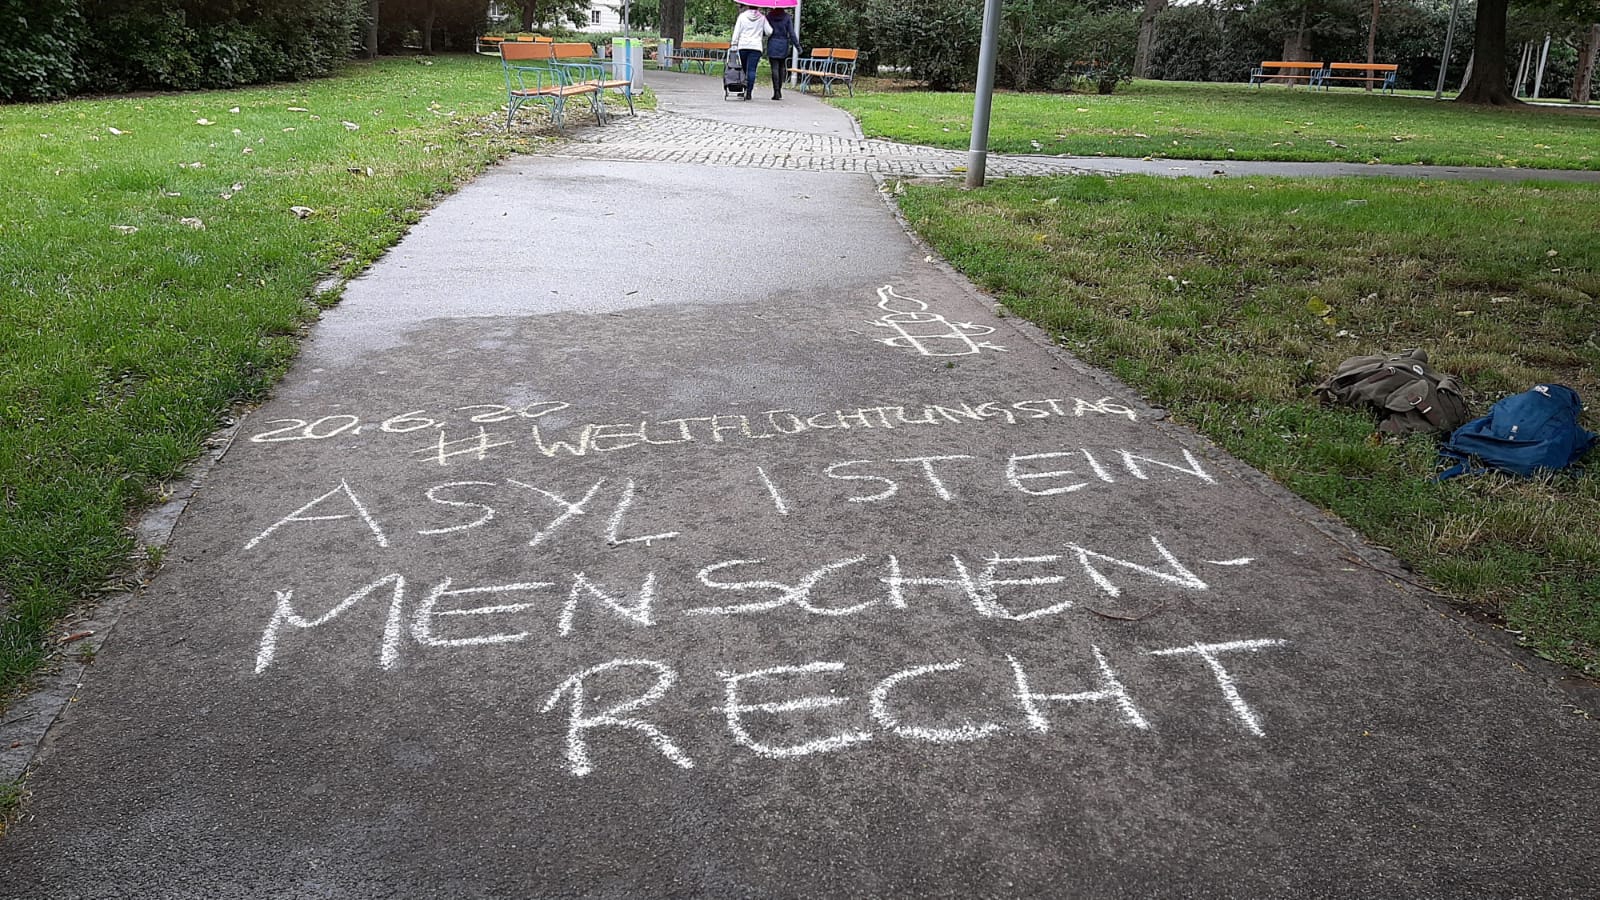 20.6.20
#WELTFLÜCHTUNGSTAG
ASYL IST EIN
MENSCHEN-
RECHT